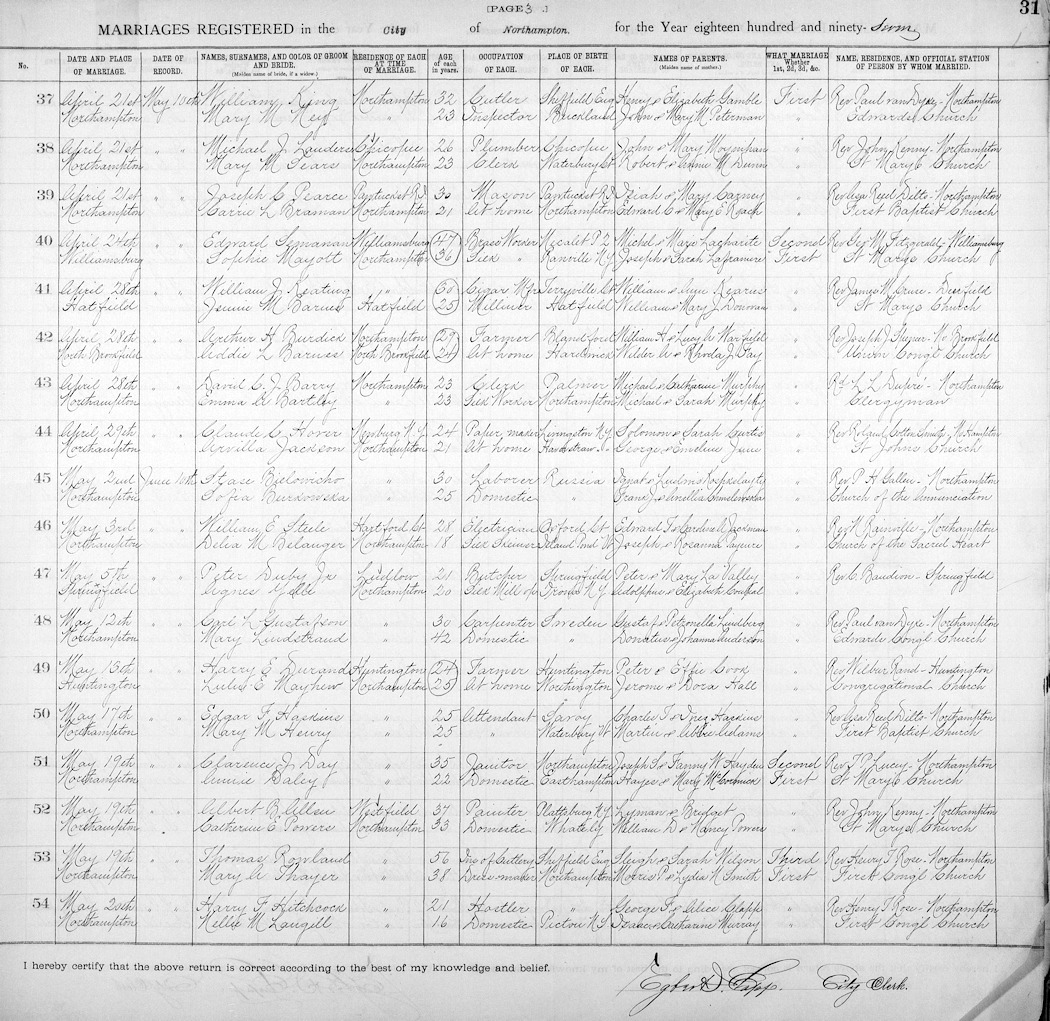 [PAGE 3 .]
31
MARRIAGES REGISTERED in the City of Northampton. for the Year eighteen hundred and ninety- Seven
No. DATE AND PLACE OF MARRIAGE. DATE OF RECORD. NAMES, SURNAMES, AND COLOR OF GROOM AND BRIDE. (Maiden name of bride, if a widow.) RESIDENCE OF EACH AT TIME OF MARRIAGE. AGE of each in years. OCCUPATION OF EACH. PLACE OF BIRTH OF EACH. NAMES OF PARENTS. (Maiden name of mother.) WHAT MARRIAGE Whether 1st, 2d, 3d, &c. NAME, RESIDENCE, AND OFFICIAL STATION OF PERSON BY WHOM MARRIED.
37 April 21st May 10th William King Northampton 32 Cutler Sheffield Eng Henry & Elizabeth Gamble First Rev Paul van Dyke - Northampton
Northampton Mary M " 23 Inspector Buckland John & Mary M Peterman " Edwards Church
38 April 21st " " Michael J. Chicopee 26 Plumber Chicopee John & Mary Moynihan " Rev John Kenny - Northampton
Northampton Mary M Northampton 23 Clerk Waterbury Ct Robert & " St Marys Church
39 April 21st " " Joseph C Pearce Pawtucket R.I. 30 Mason Pawtucket R.I. & Mary Carney " Rev Asa Reed Dilts - Northampton
Northampton Carrie L Braman Northampton 21 At home Northampton Edward C & Mary E " First Baptist Church
40 April 24th " " Edward Williamsburg 47 Brass Worker Michel & Marie Second Rev Geo M Fitzgerald - Williamsburg
Williamsburg Sophie Mayott Northampton 36 Silk " Joseph & Sarah First St Marys Church
41 April 28th " " William J. Keating " 60 Cigar Mfr William & " Rev James - Deerfield
Hatfield Jennie M Hatfield 25 Milliner Hatfield William & Mary J. Donovan " St Marys Church
42 April 28th " " Arthur H Burdick Northampton 27 Farmer Blandford William H & Lucy A Warfield " Rev Joseph J - No Brookfield
North Brookfield Addie L Barnes North Brookfield 24 At home Hardwick Wilder & Rhoda J. Fay " Union Congl Church
43 April 28th " " David C. J. Barry Northampton 23 Clerk Palmer Michael & Catharine Murphy " L L - Northampton
Northampton Emma A Bartley " 23 Silk Worker Northampton Michael & Sarah Murphy " Clergyman
44 April 29th " " Claude C Hover 24 Paper maker Livingston N.Y. Solomon & Sarah Curtis "
Northampton Arvilla Jackson Northampton 21 At home George & Emeline June " St Johns Church
45 May 2nd June 10th " 30 Laborer Russia " Rev P H Gallen - Northampton
Northampton Zofia " 25 Domestic " " Church of the Annunciation
46 May 3rd " " William E Steele Hartford Ct. 28 Electrician Oxford Edward T & Cordelia A Jackman " Rev N Rainville - Northampton
Northampton Delia M Belanger Northampton 18 Silk Island Pond Vt Joseph & Rosanna " Church of the Sacred Heart
47 May 5th " " Peter Jr Ludlow 21 Butcher Springfield Peter & Mary La Valley " Rev C. - Springfield
Springfield Agnes Northampton 20 Silk Mill op N.Y. Adolphus & Elizabeth " "
48 May 12th " " Carl L. Gustafson " 30 Carpenter Sweden Gustaf & Petronella Lundberg " Rev Paul van Dyke - Northampton
Northampton Mary Lindstrand " 42 Domestic " & Johanna Anderson " Edwards Congl Church
49 May 13th " " Harry E Durand Huntington 24 Farmer Huntington Peter & Effie Cook " Rev Wilbur Rand - Huntington
Huntington E Mayhew Northampton 25 At home Worthington Jerome & Dora Hall " Congregational Church
50 May 17th " " Edgar F. Haskins " 25 Attendant Savoy Charles T & Haskins " Rev Asa Reed Dilts - Northampton
Northampton Mary M Henry " 25 " Waterbury Vt Martin & Adams " First Baptist Church
51 May 19th " " Clarence J. Day " 35 Janitor Northampton Joseph S & Fanny W Hayden Second Rev T P Lucy - Northampton
Northampton Annie Daley " 22 Domestic Easthampton Hayes & Mary McCormick First St Marys Church
52 May 19th " " Gilbert B. Westfield 37 Painter Plattsburg N.Y. Lyman & Bridget " Rev John Kenny - Northampton
Northampton Catherine E Powers Northampton 33 Domestic Whately William D & Nancy Powers " St Marys Church
53 May 19th " " Thomas Rowland " 56 Ins of Cutlery Sheffield Eng & Sarah Wilson Third Rev Henry T Rose - Northampton
Northampton Mary A Thayer " 38 Dress-maker Northampton Morris P & Lydia N Smith First First Congl Church
54 May 20th " " Harry F. Hitchcock " 21 Hostler " George F & Alice Clapp " Rev Henry T Rose - Northampton
Northampton Nellie M Langell " 16 Domestic Pictou N.S. Isaac & Catharine Murray " First Congl Church
I hereby certify that the above return is correct according to the best of my knowledge and belief.
Egbert I. Clapp. City Clerk.